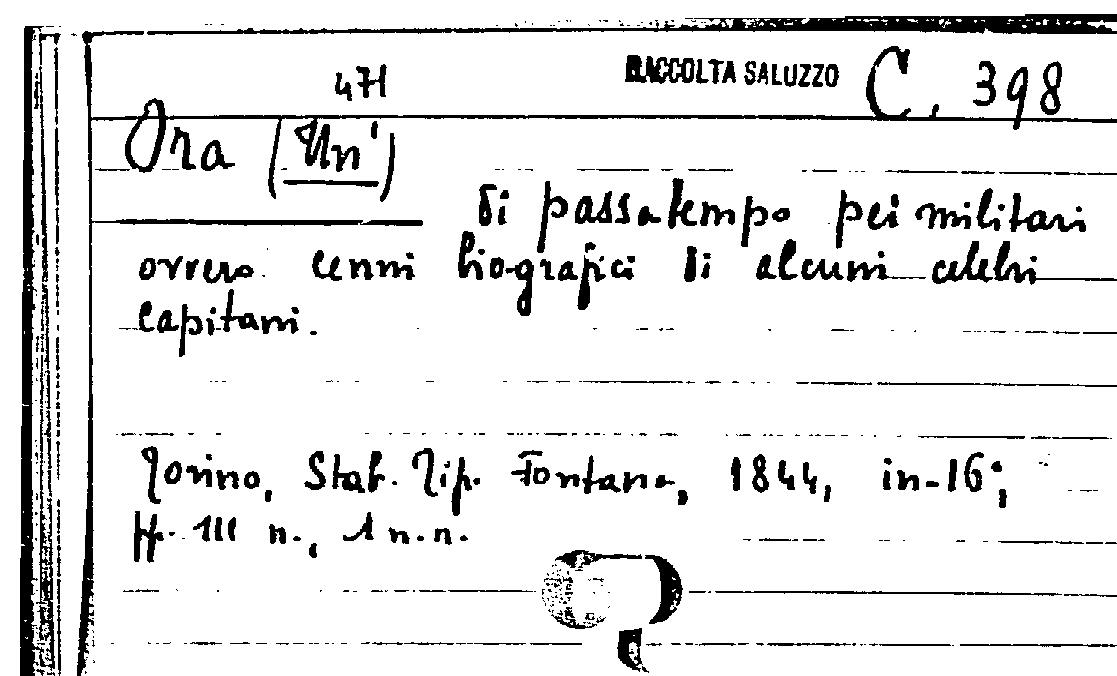 471
RACCOLTA SALUZZO C. 398
Ora (Un')
di passatempo pei militari
ovvero cenni biografici di alcuni celebri
capitani.
Torino, Stab. Tip. Fontana, 1844, in-16°;
pp. 111 n., 1 n.n.